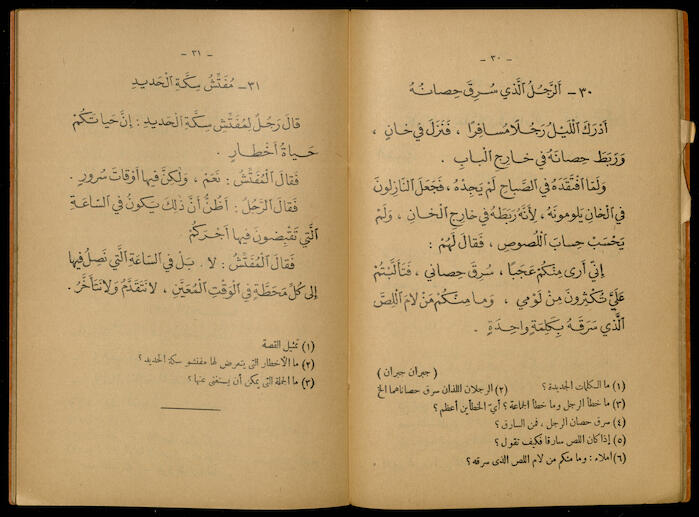 - ٣٠ -
٣٠ - اَلرَّجُلُ الَّذي سُرِقَ حِصانُهُ
أَدْرَكَ اللَّيْلُ رَجُلًا مُسَافِرًا ، فَنَزَلَ في خَانٍ ،
وَرَبَطَ حِصانَهُ في خَارِجِ الْبابِ .
وَلَمَّا افْتَقَدَهُ في الصَّباحِ لَمْ يَجِدْهُ ، فَجَعَلَ النَّازِلُونَ
في الْخانِ يَلومونَهُ ، لِأَنَّهُ رَبَطَهُ في خَارِجِ الْخانِ ، وَلَمْ
يَحْسَبْ حِسابَ اللُّصوصِ ، فَقالَ لَهُمْ :
إِنّي أَرى مِنْكُمْ عَجَبًا ، سُرِقَ حِصاني ، فَتَأَلَّبْتُمْ
عَلَيَّ تُكْثِرُونَ مِنْ لَوْمي ، وَما مِنْكُمْ مَنْ لامَ اللِّصَّ
الَّذي سَرَقَهُ بِكَلِمَةٍ واحِدَةٍ .
( جبران جبران )
(١) ما الكلمات الجديدة ؟ (٢) الرجلان اللذان سرق حصاناهما الخ
(٣) ما خطأ الرجل وما خطأ الجماعة ؟ أيّ الخطأين أعظم ؟
(٤) سرق حصان الرجل ، فمن السارق ؟
(٥) إذا كان اللص سارقا فكيف تقول ؟
(٦) املاء : وما منكم من لام اللص الذى سرقه ؟
- ٣١ -
٣١ - مُفَتِّشُ سِكَّةِ الْحَديدِ
قالَ رَجُلٌ لِمُفَتِّشِ سِكَّةِ الْحَديدِ : إِنَّ حَيا تَكُمْ
حَياةُ أَخْطارٍ .
فَقالَ الْمُفَتِّشُ : نَعَمْ ، وَلكِنَّ فيها أَوْقاتَ سُرورٍ .
فَقالَ الرَّجُلُ : أَظُنُّ أَنَّ ذلِكَ يَكونُ في السَّاعَةِ
الَّتي تَقْبِضونَ فيها أَجْرَكُمْ
فَقالَ الْمُفَتِّشُ : لا . بَلْ في السَّاعَةِ الَّتي نَصِلُ فيها
إِلى كُلِّ مَحَطَّةٍ في الْوَقْتِ الْمُعَيَّنِ ، لا نَتَقَدَّمُ وَلا نَتَأَخَّرُ .
(١) تمثيل القصة
(٢) ما الأخطار التى يتعرض لها مفتشو سكة الحديد ؟
(٣) ما الجملة التى يمكن أن يستغنى عنها ؟